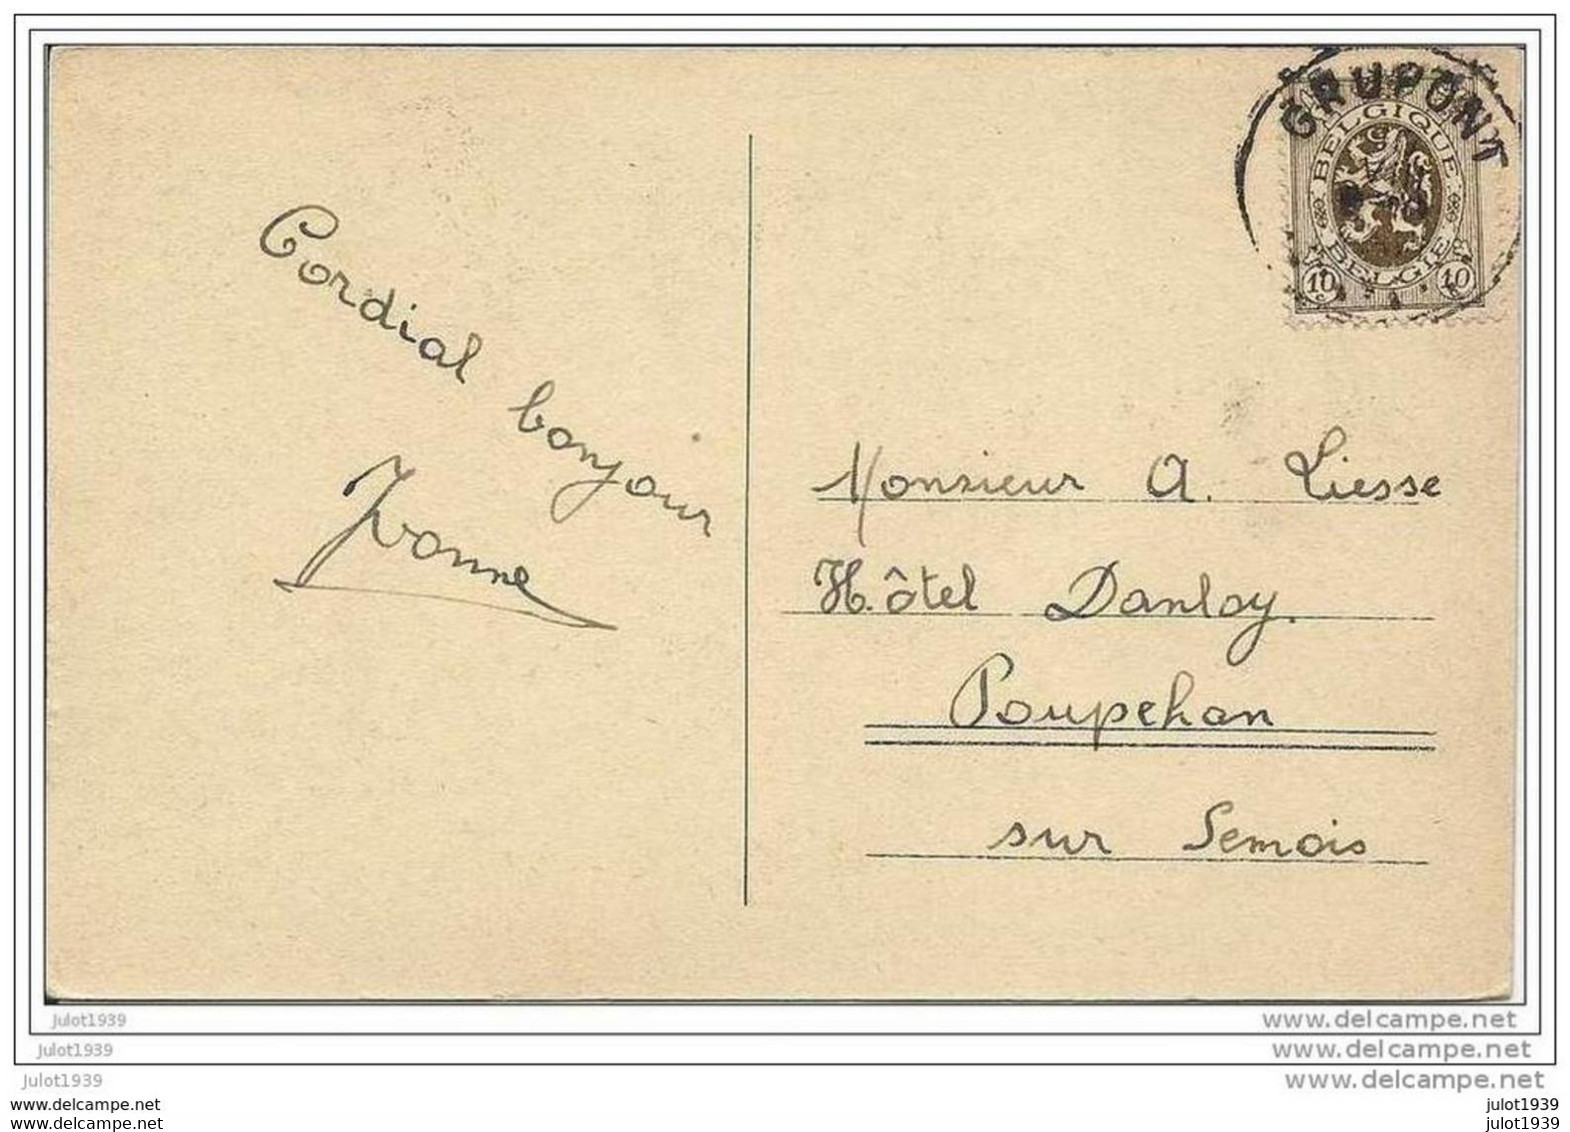 GRUPONT
BELGIQUE
BELGIE
10 c 10
Cordial bonjour
Yvonne
Monsieur A. Liesse
Hôtel Danloy.
Poupehan
sur Semois
julot1939
www.delcampe.net
julot1939
www.delcampe.net
julot1939
www.delcampe.net
www.delcampe.com
julot1939
www.delcampe.com
julot1939